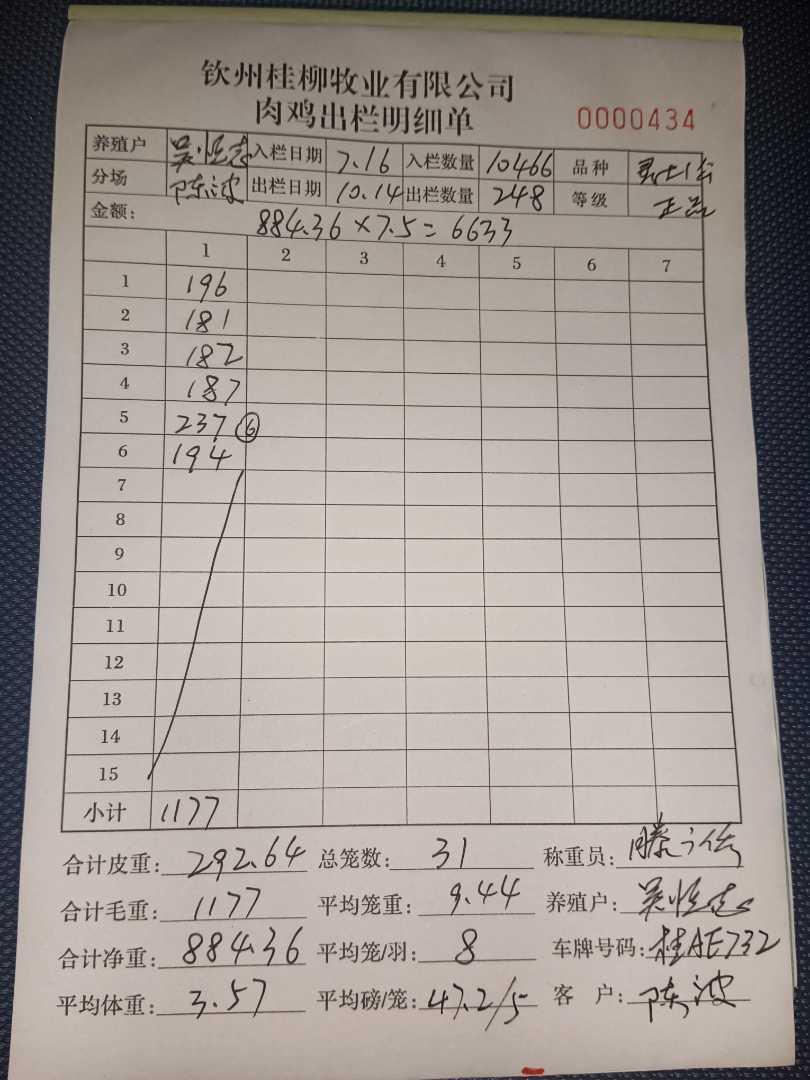 钦州桂柳牧业有限公司
肉鸡出栏明细单 0000434
养殖户 吴恒志 入栏日期 7.16 入栏数量 10466 品种
分场 陈波 出栏日期 10.14 出栏数量 248 等级 正品
金额: 884.36×7.5=6633
1 2 3 4 5 6 7
1 196
2 181
3 182
4 187
5 237 ⑥
6 194
7
8
9
10
11
12
13
14
15
小计 1177
合计皮重: 292.64 总笼数: 31 称重员:
合计毛重: 1177 平均笼重: 9.44 养殖户: 吴恒志
合计净重: 884.36 平均笼/羽: 8 车牌号码: 桂AE732
平均体重: 3.57 平均磅/笼: 47.2/5 客 户: 陈波